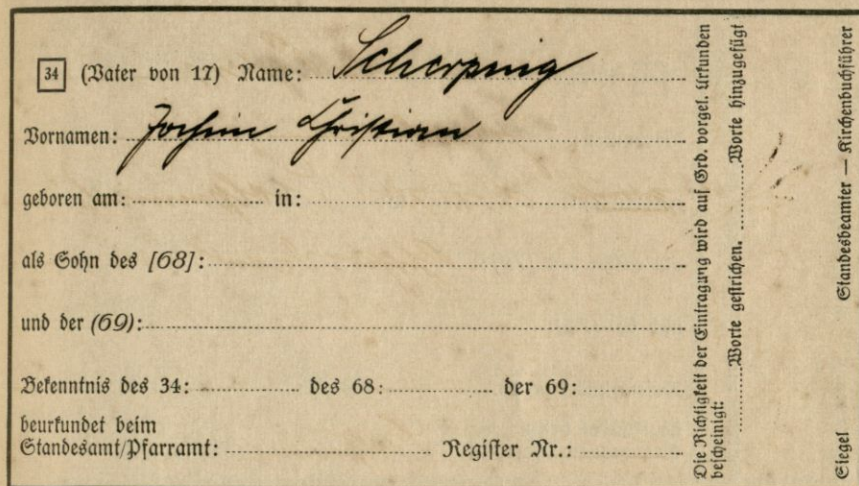 34 (Vater von 17) Name: Scherping
Vornamen: Jochim Christian
geboren am: in:
als Sohn des [68]:
und der (69):
Bekenntnis des 34: des 68: der 69:
beurkundet beim
Standesamt/Pfarramt: Register Nr.:
Die Richtigkeit der Eintragung wird auf Grd. vorgel. Urkunden
bescheinigt: Worte gestrichen. Worte hinzugefügt
Siegel Standesbeamter — Kirchenbuchführer